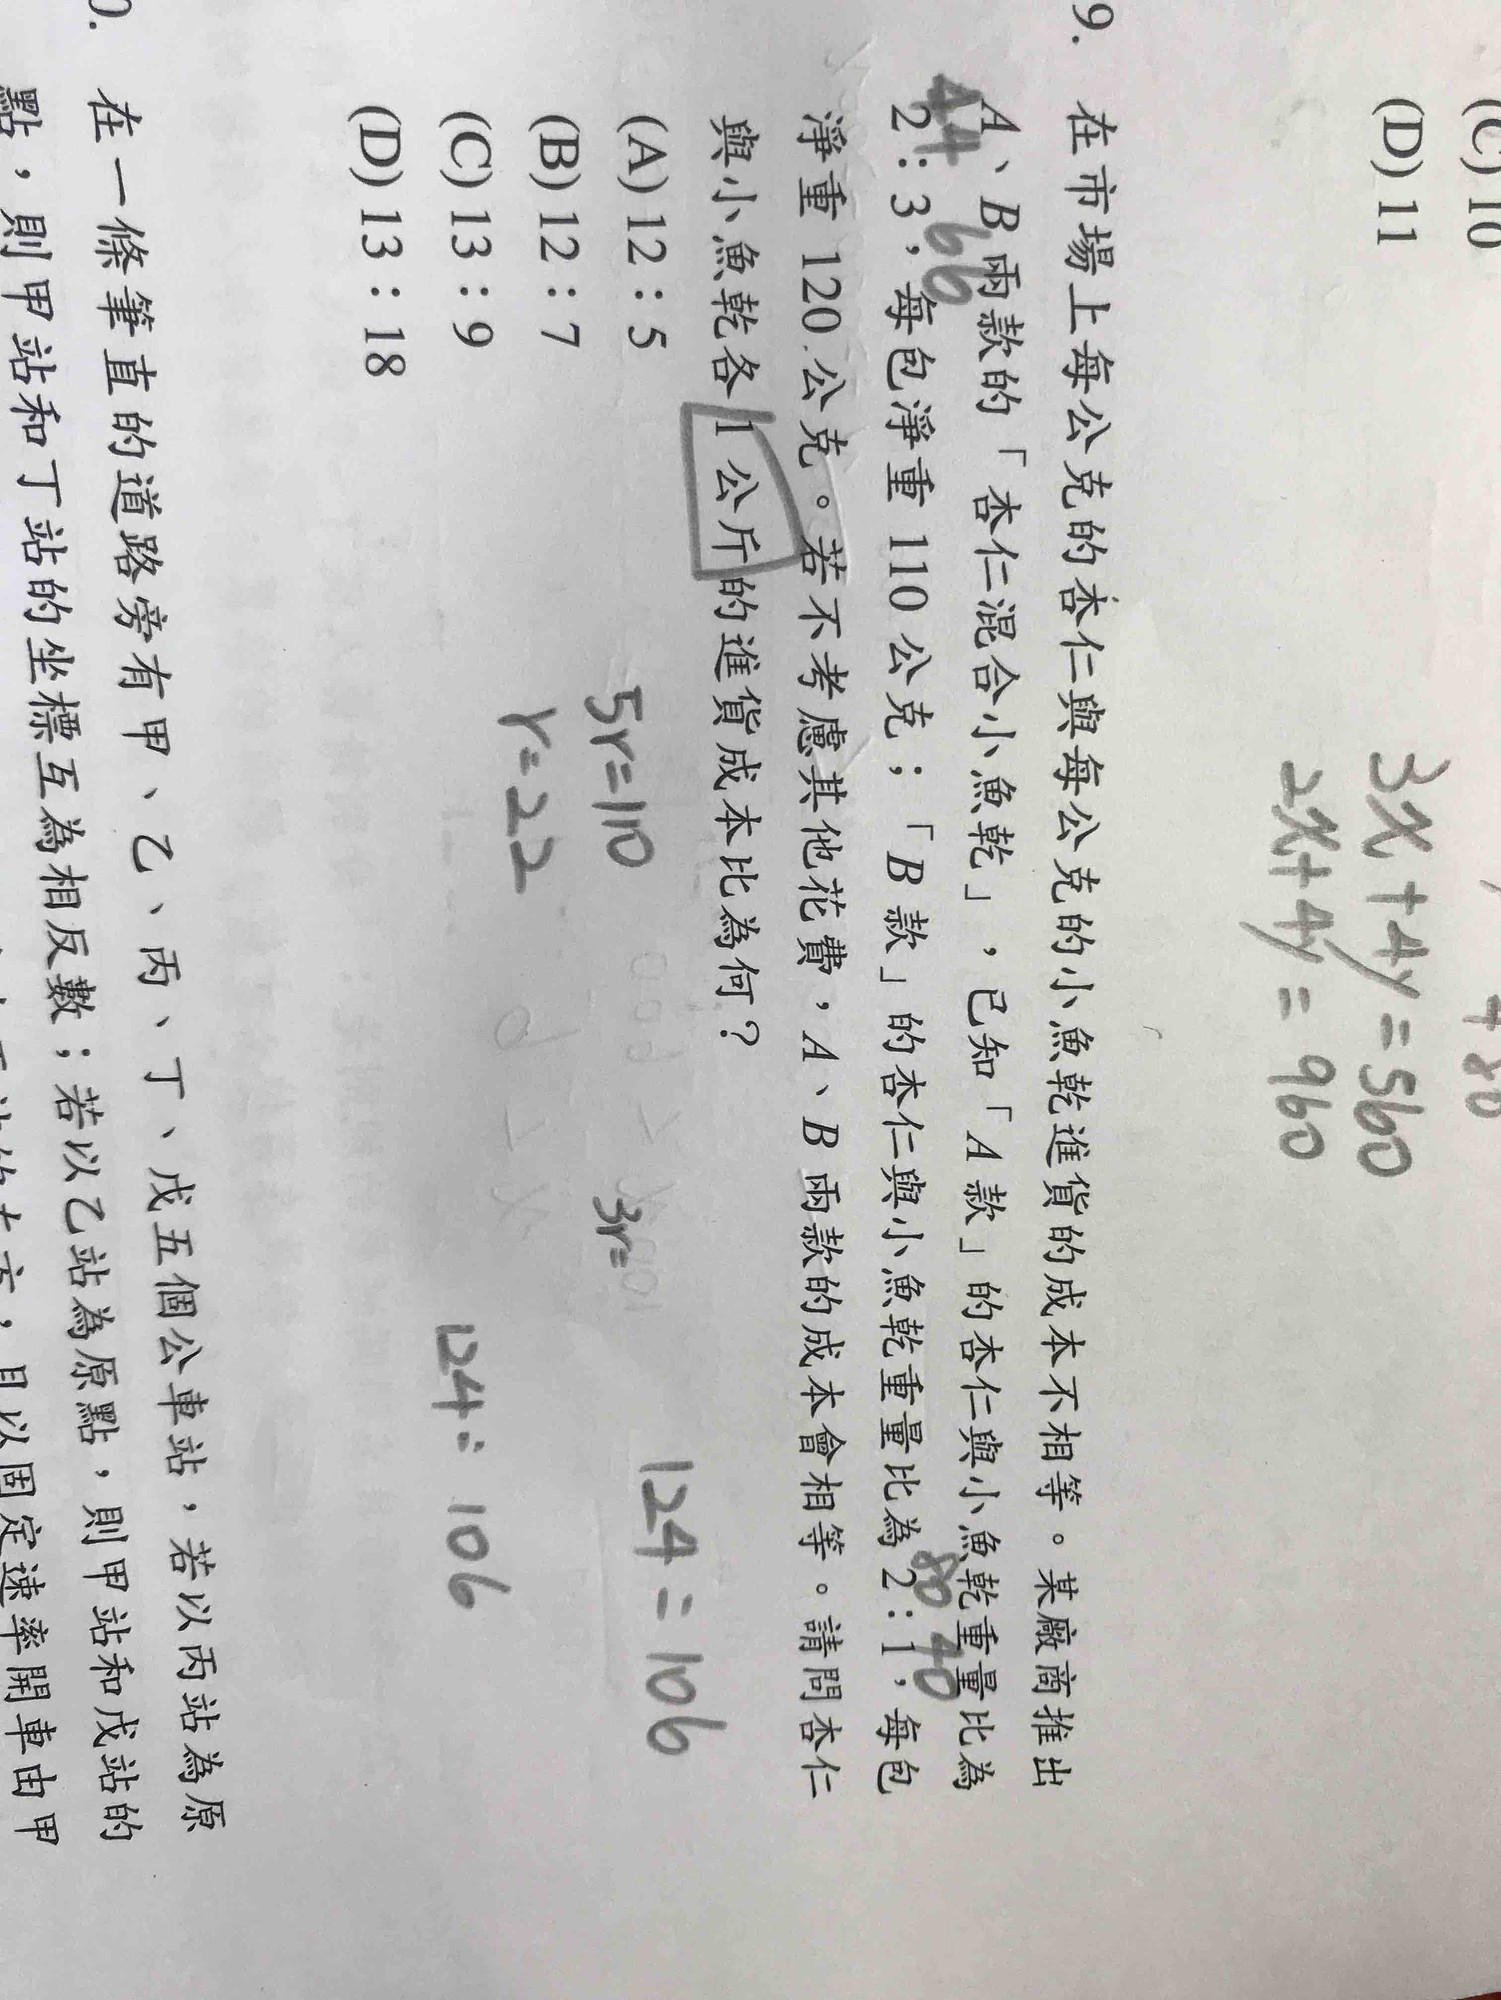 (C) 10
(D) 11
+80
3x+4y=560
2x+4y=960
9. 在市場上每公克的杏仁與每公克的小魚乾進貨的成本不相等。某廠商推出
A、B兩款的「杏仁混合小魚乾」，已知「A款」的杏仁與小魚乾重量比為
44 66 80 40
2：3，每包淨重110公克；「B款」的杏仁與小魚乾重量比為2：1，每包
淨重120公克。若不考慮其他花費，A、B兩款的成本會相等。請問杏仁
與小魚乾各1公斤的進貨成本比為何？
(A) 12：5
(B) 12：7
(C) 13：9
(D) 13：18
5r=110
r=22
3r=
124=106
124：106
0. 在一條筆直的道路旁有甲、乙、丙、丁、戊五個公車站，若以丙站為原
點，則甲站和丁站的坐標互為相反數；若以乙站為原點，則甲站和戊站的
，且以固定速率開車由甲